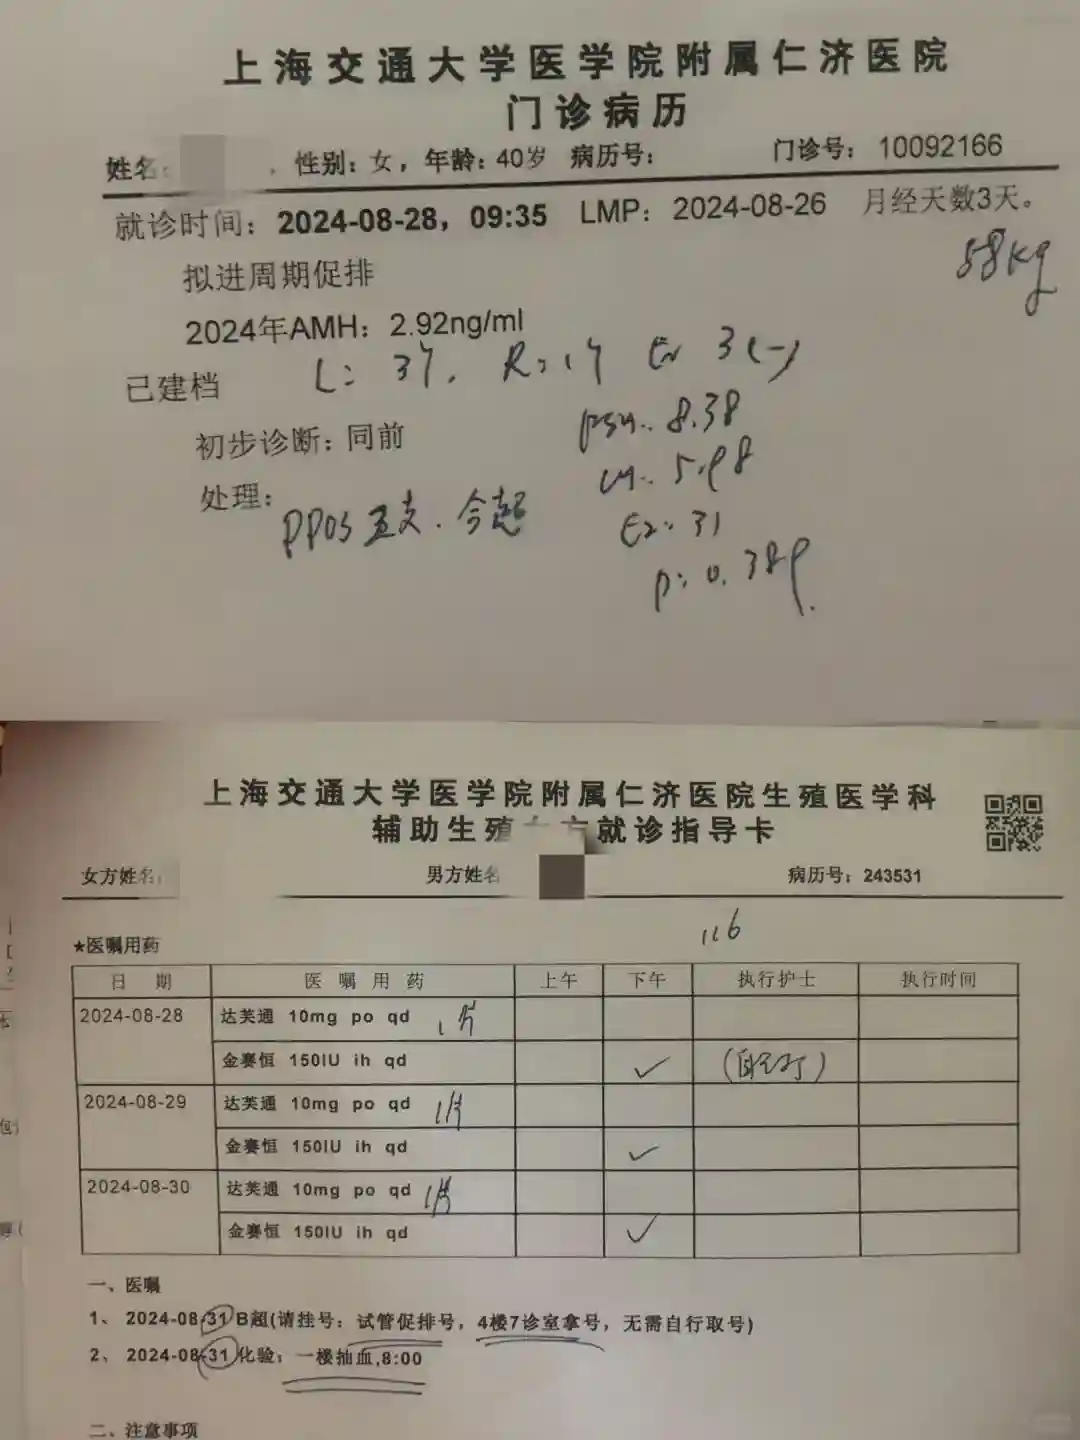 上海交通大学医学院附属仁济医院
门诊病历
姓名: ，性别: 女，年龄: 40岁 病历号: 门诊号: 10092166
就诊时间: 2024-08-28，09:35 LMP: 2024-08-26 月经天数3天。
58kg
拟进周期促排
2024年AMH: 2.92ng/ml
已建档
L: 37. R: 17 En 3 (-)
初步诊断: 同前
8.38
处理:
5.98
PPOS 五支. 今起
E2: 31
P: 0.389.
上海交通大学医学院附属仁济医院生殖医学科
辅助生殖女方就诊指导卡
女方姓名: 男方姓名 病历号: 243531
116
★医嘱用药
日 期 医 嘱 用 药 上午 下午 执行护士 执行时间
2024-08-28 达芙通 10mg po qd 1片
金赛恒 150IU ih qd ✓
2024-08-29 达芙通 10mg po qd 1片
金赛恒 150IU ih qd ✓
2024-08-30 达芙通 10mg po qd 1片
金赛恒 150IU ih qd ✓
一、医嘱
1、 2024-08-31 B超(请挂号: 试管促排号, 4楼7诊室拿号, 无需自行取号)
2、 2024-08-31 化验: 一楼抽血,8:00
二、注意事项